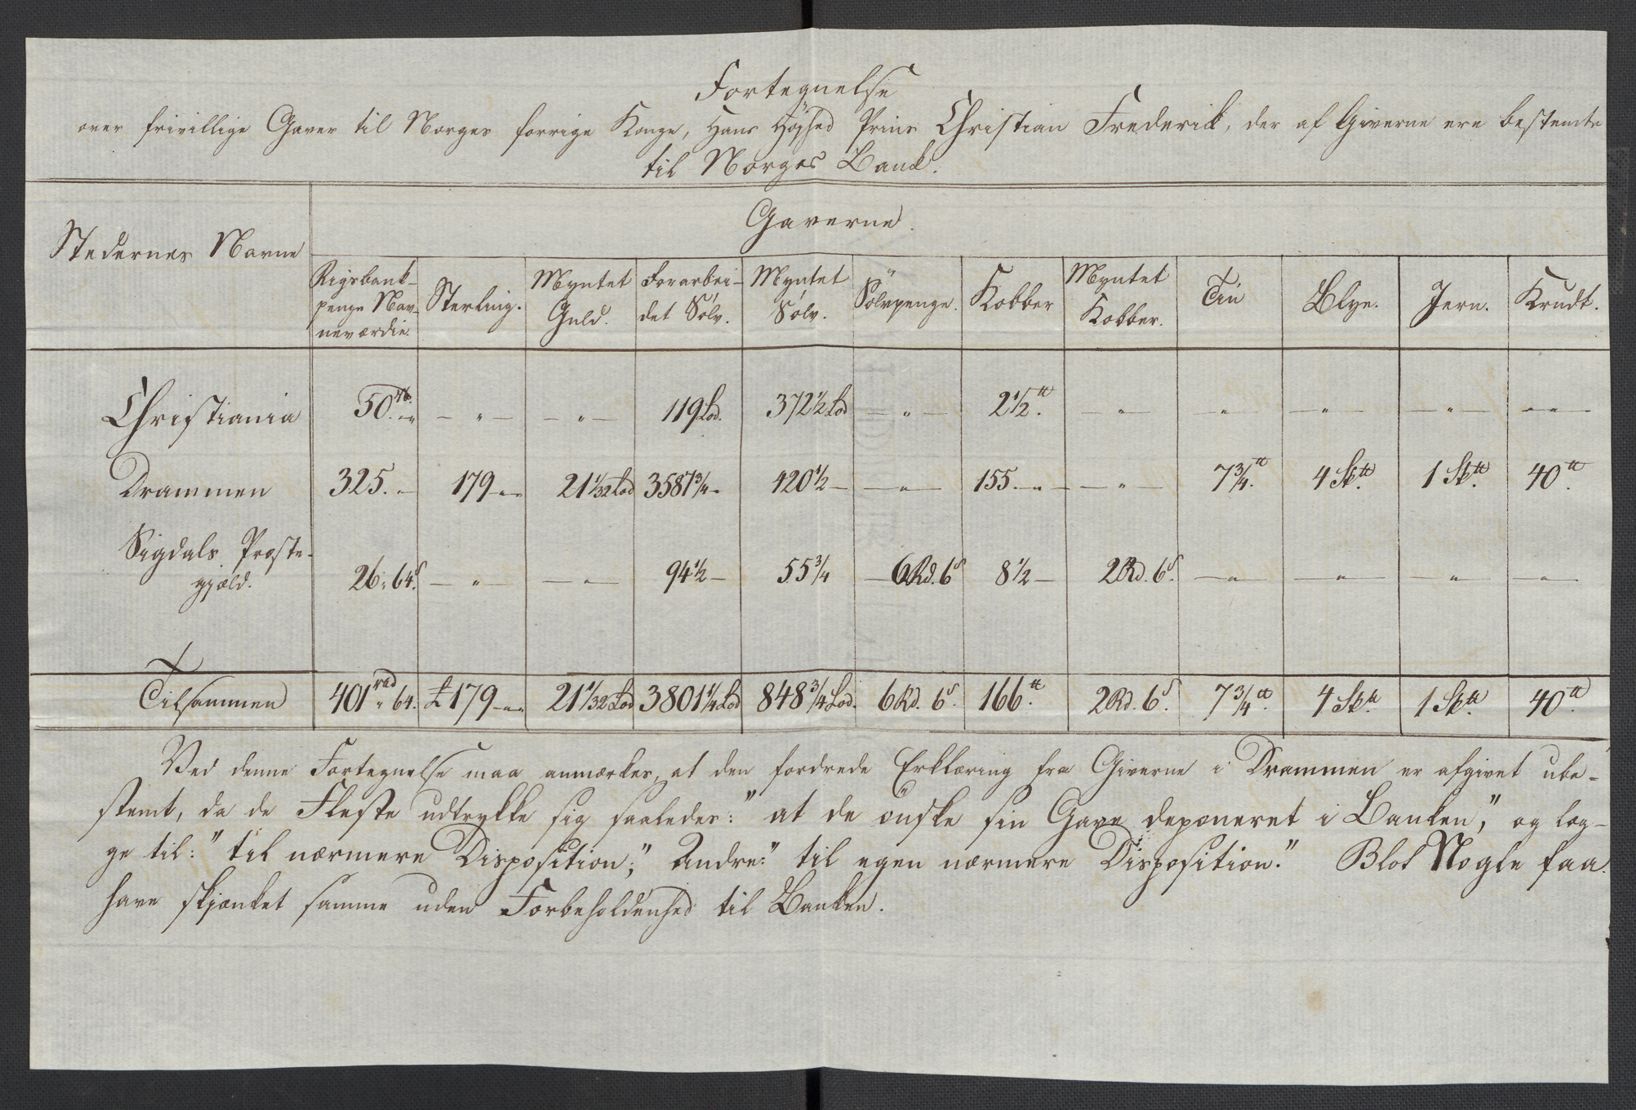 Fortegnelse
over frivillige Gaver til Norges forrige Konge, Hans Høyhed Prins Christian Frederik, der af Giverne ere bestemte
til Norges Bank.
Gaverne.
Stedernes Navne
Rigsbank- Sterling. Myntet Forarbei- Myntet Sølvpenge. Kobber Myntet Tin Blye. Jern. Krudt.
penge Nav- Guld. det Sølv. Sølv. Kobber.
neværdie.
Christiania 50. rb. " — " — — " — 119 Lod. 372 1/2 Lod — " — 2 1/2 ℔. " " — " — — " — — " —
Drammen 325. " 179 — " 21 1/32 Lod 3587 3/4 — 420 1/2 — — " — 155. — " — — " — 7 3/4 ℔. 4 Sk℔. 1 Sk℔. 40 ℔.
Sigdals Præste-
gjæld. 26. 64 s — " — — " — 94 1/2 — 55 3/4 — 6 Rd. 6 s 8 1/2 — 2 Rd. 6 s. — " — — " — — " — — " —
Tilsammen 401 rbd " 64. £ 179 — " 21 1/32 Lod 3801 1/4 Lod 848 3/4 Lod. 6 Rd. 6 s. 166 ℔. 2 Rd. 6 s. 7 3/4 ℔. 4 Sk℔ 1 Sk℔. 40 ℔.
Ved denne Fortegnelse maa anmærkes, at den fordrede Erklæring fra Giverne i Drammen er afgivet ube-
stemt, da de Fleste udtrykke sig saaledes: " at de ønske sin Gave deponeret i Banken," og læg-
ge til: " til nærmere Disposition;" Andre: " til egen nærmere Disposition." Blot Nogle faa
have skjænket samme uden Forbeholdenhed til Banken.